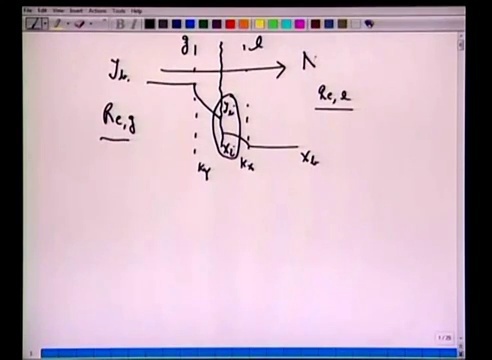 File Edit View Insert Actions Tools Help
g, , l
y_b N
Re,g y_i Re,l
x_i x_b
k_y k_x
1/25